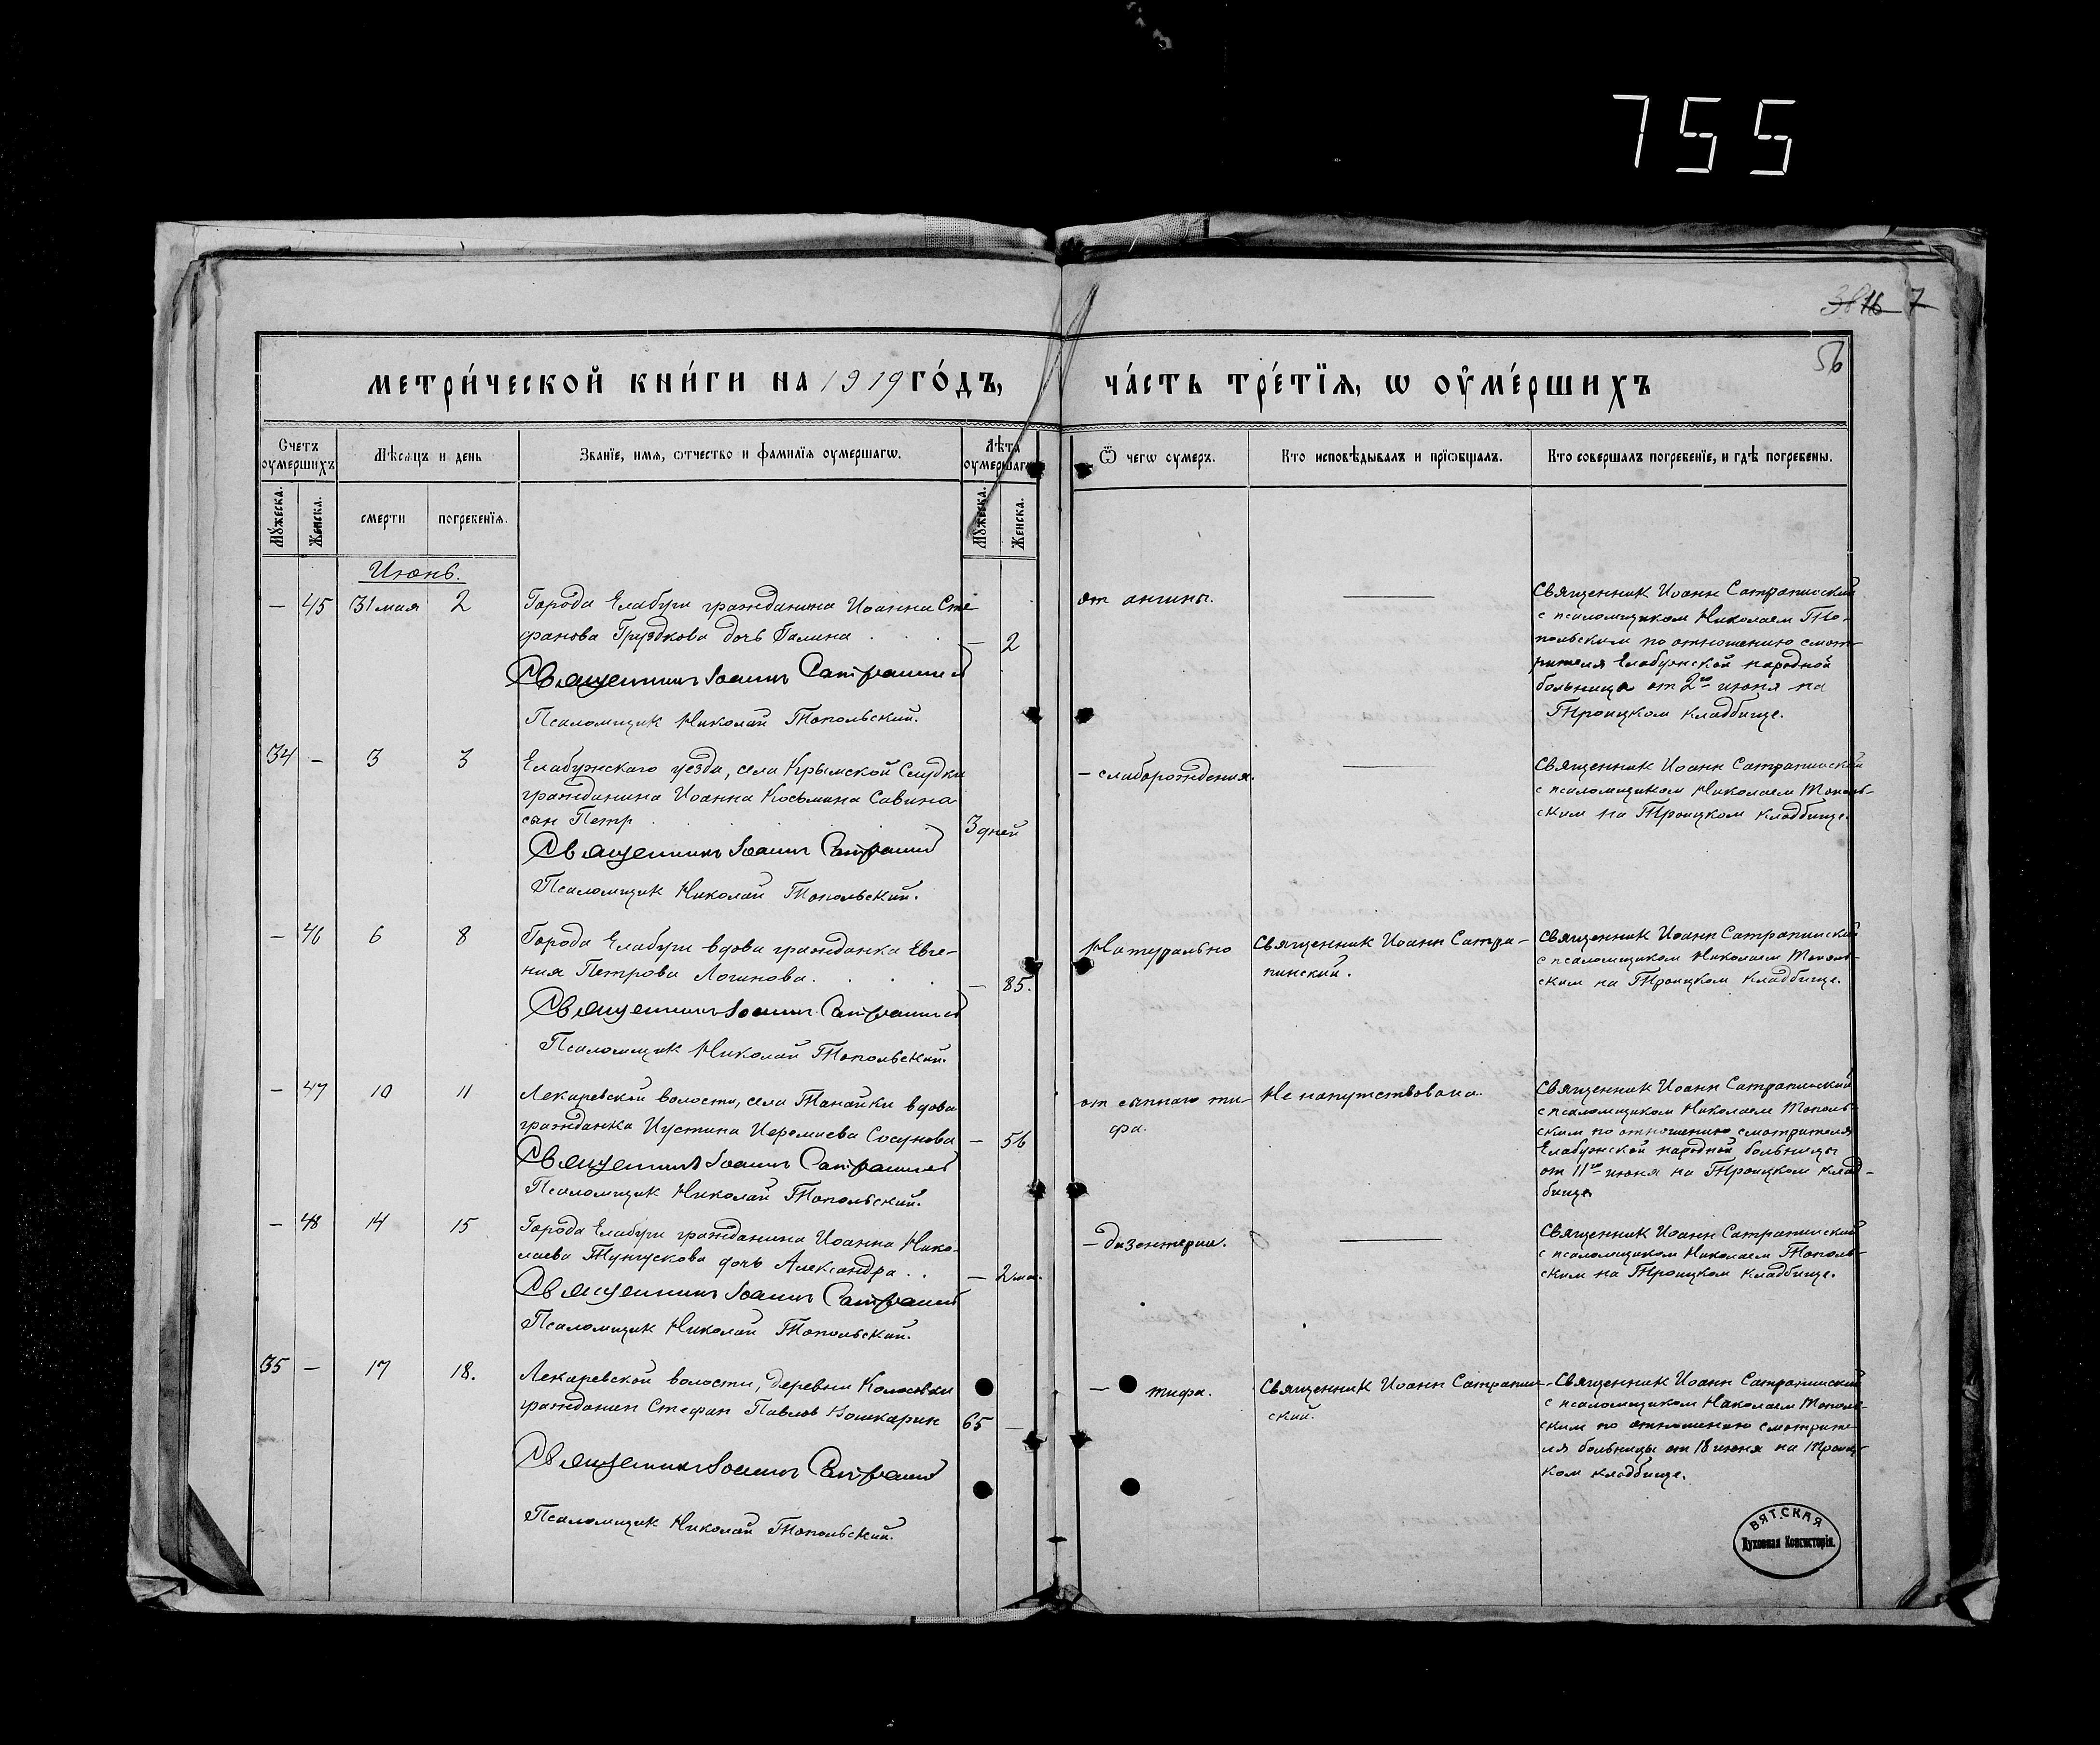 755
3816 7
56
МЕТРИ́ЧЕСКОЙ КНИ́ГИ НА 1919 ГО́ДЪ,
ЧА́СТЬ ТРЕ́ТЇЯ, Ѡ ОУ҆МЕ́РШИХЪ
Счетъ оумершихъ
Мѣсяцъ и день
Званїе, имя, ѿчество и фамилїя оумершагѡ.
Лѣта оумершагѡ
Ѿ чегѡ оумеръ.
Кто исповѣдывалъ и прїѡбщалъ.
Кто совершалъ погребенїе, и гдѣ погребены.
Мꙋжеска.
Женска.
смерти
погребенїя.
Мꙋжеска.
Женска.
Июнь.
– 45 31 мая 2
Города Елабуги гражданина Иоанна Сте
фанова Груздкова дочь Галина . . .
– 2
Священник Иоанн Сатрапинский
Псаломщик Николай Топольский.
от ангины.
Священник Иоанн Сатрапинский
с псаломщиком Николаем То-
польским по отношению смот-
рителя Елабужской народной
больницы от 2го июня на
Троицком кладбище.
34 – 3 3
Елабужского уезда, села Крымской Слудки
гражданина Иоанна Косьмина Савина
сын Петр . . . .
3 дней
Священник Иоанн Сатрапинский
Псаломщик Николай Топольский.
– слаборождения.
Священник Иоанн Сатрапинский
с псаломщиком Николаем Тополь-
ским на Троицком кладбище.
– 46 6 8
Города Елабуги вдова гражданка Евге-
ния Петрова Логинова. . . .
– 85.
Священник Иоанн Сатрапинский
Псаломщик Николай Топольский.
Натурально
Священник Иоанн Сатра-
пинский.
Священник Иоанн Сатрапинский
с псаломщиком Николаем Тополь-
ским на Троицком кладбище.
– 47 10 11
Лекаревской волости, села Танайки вдова
гражданка Иустина Иеремиева Сосунова
– 56
Священник Иоанн Сатрапинский
Псаломщик Николай Топольский.
от сыпнаго ти-
фа.
Не напутствована.
Священник Иоанн Сатрапинский
с псаломщиком Николаем Тополь-
ским по отношению смотрителя
Елабужской народной больницы
от 11го июня на Троицком клад-
бище
– 48 14 15
Города Елабуги гражданина Иоанна Нико-
лаева Тунгускова дочь Александра . .
– 2 ме.
Священник Иоанн Сатрапинский
Псаломщик Николай Топольский.
– дизентерии.
Священник Иоанн Сатрапинский
с псаломщиком Николаем Тополь-
ским на Троицком кладбище.
35 – 17 18.
Лекаревской волости, деревни Колосовки
гражданин Стефан Павлов Кошкарин
65 –
Священник Иоанн Сатрапинский
Псаломщик Николай Топольский.
– тифа.
Священник Иоанн Сатрапин-
ский.
Священник Иоанн Сатрапинский
с псаломщиком Николаем Тополь-
ским по отношению смотрите-
ля больницы от 18 июня на Троиц-
ком кладбище.
ВЯТСКАЯ
Духовная Консисторія.